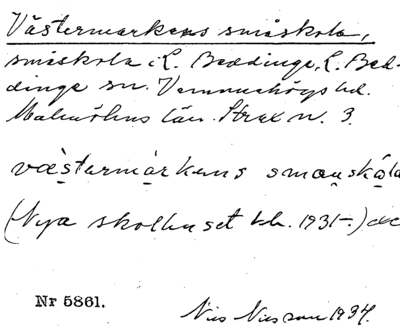 Västermarkens småskola,
småskola i L. Beddinge, L. Bed-
dinge sn. Vemmenhögs hd.
Malmöhus län. Strax n. 3.
västermarkens smauskåla
(Nya skolhuset bb. 1931-.)
Nr 5861.
Nils Nilsson 1934.